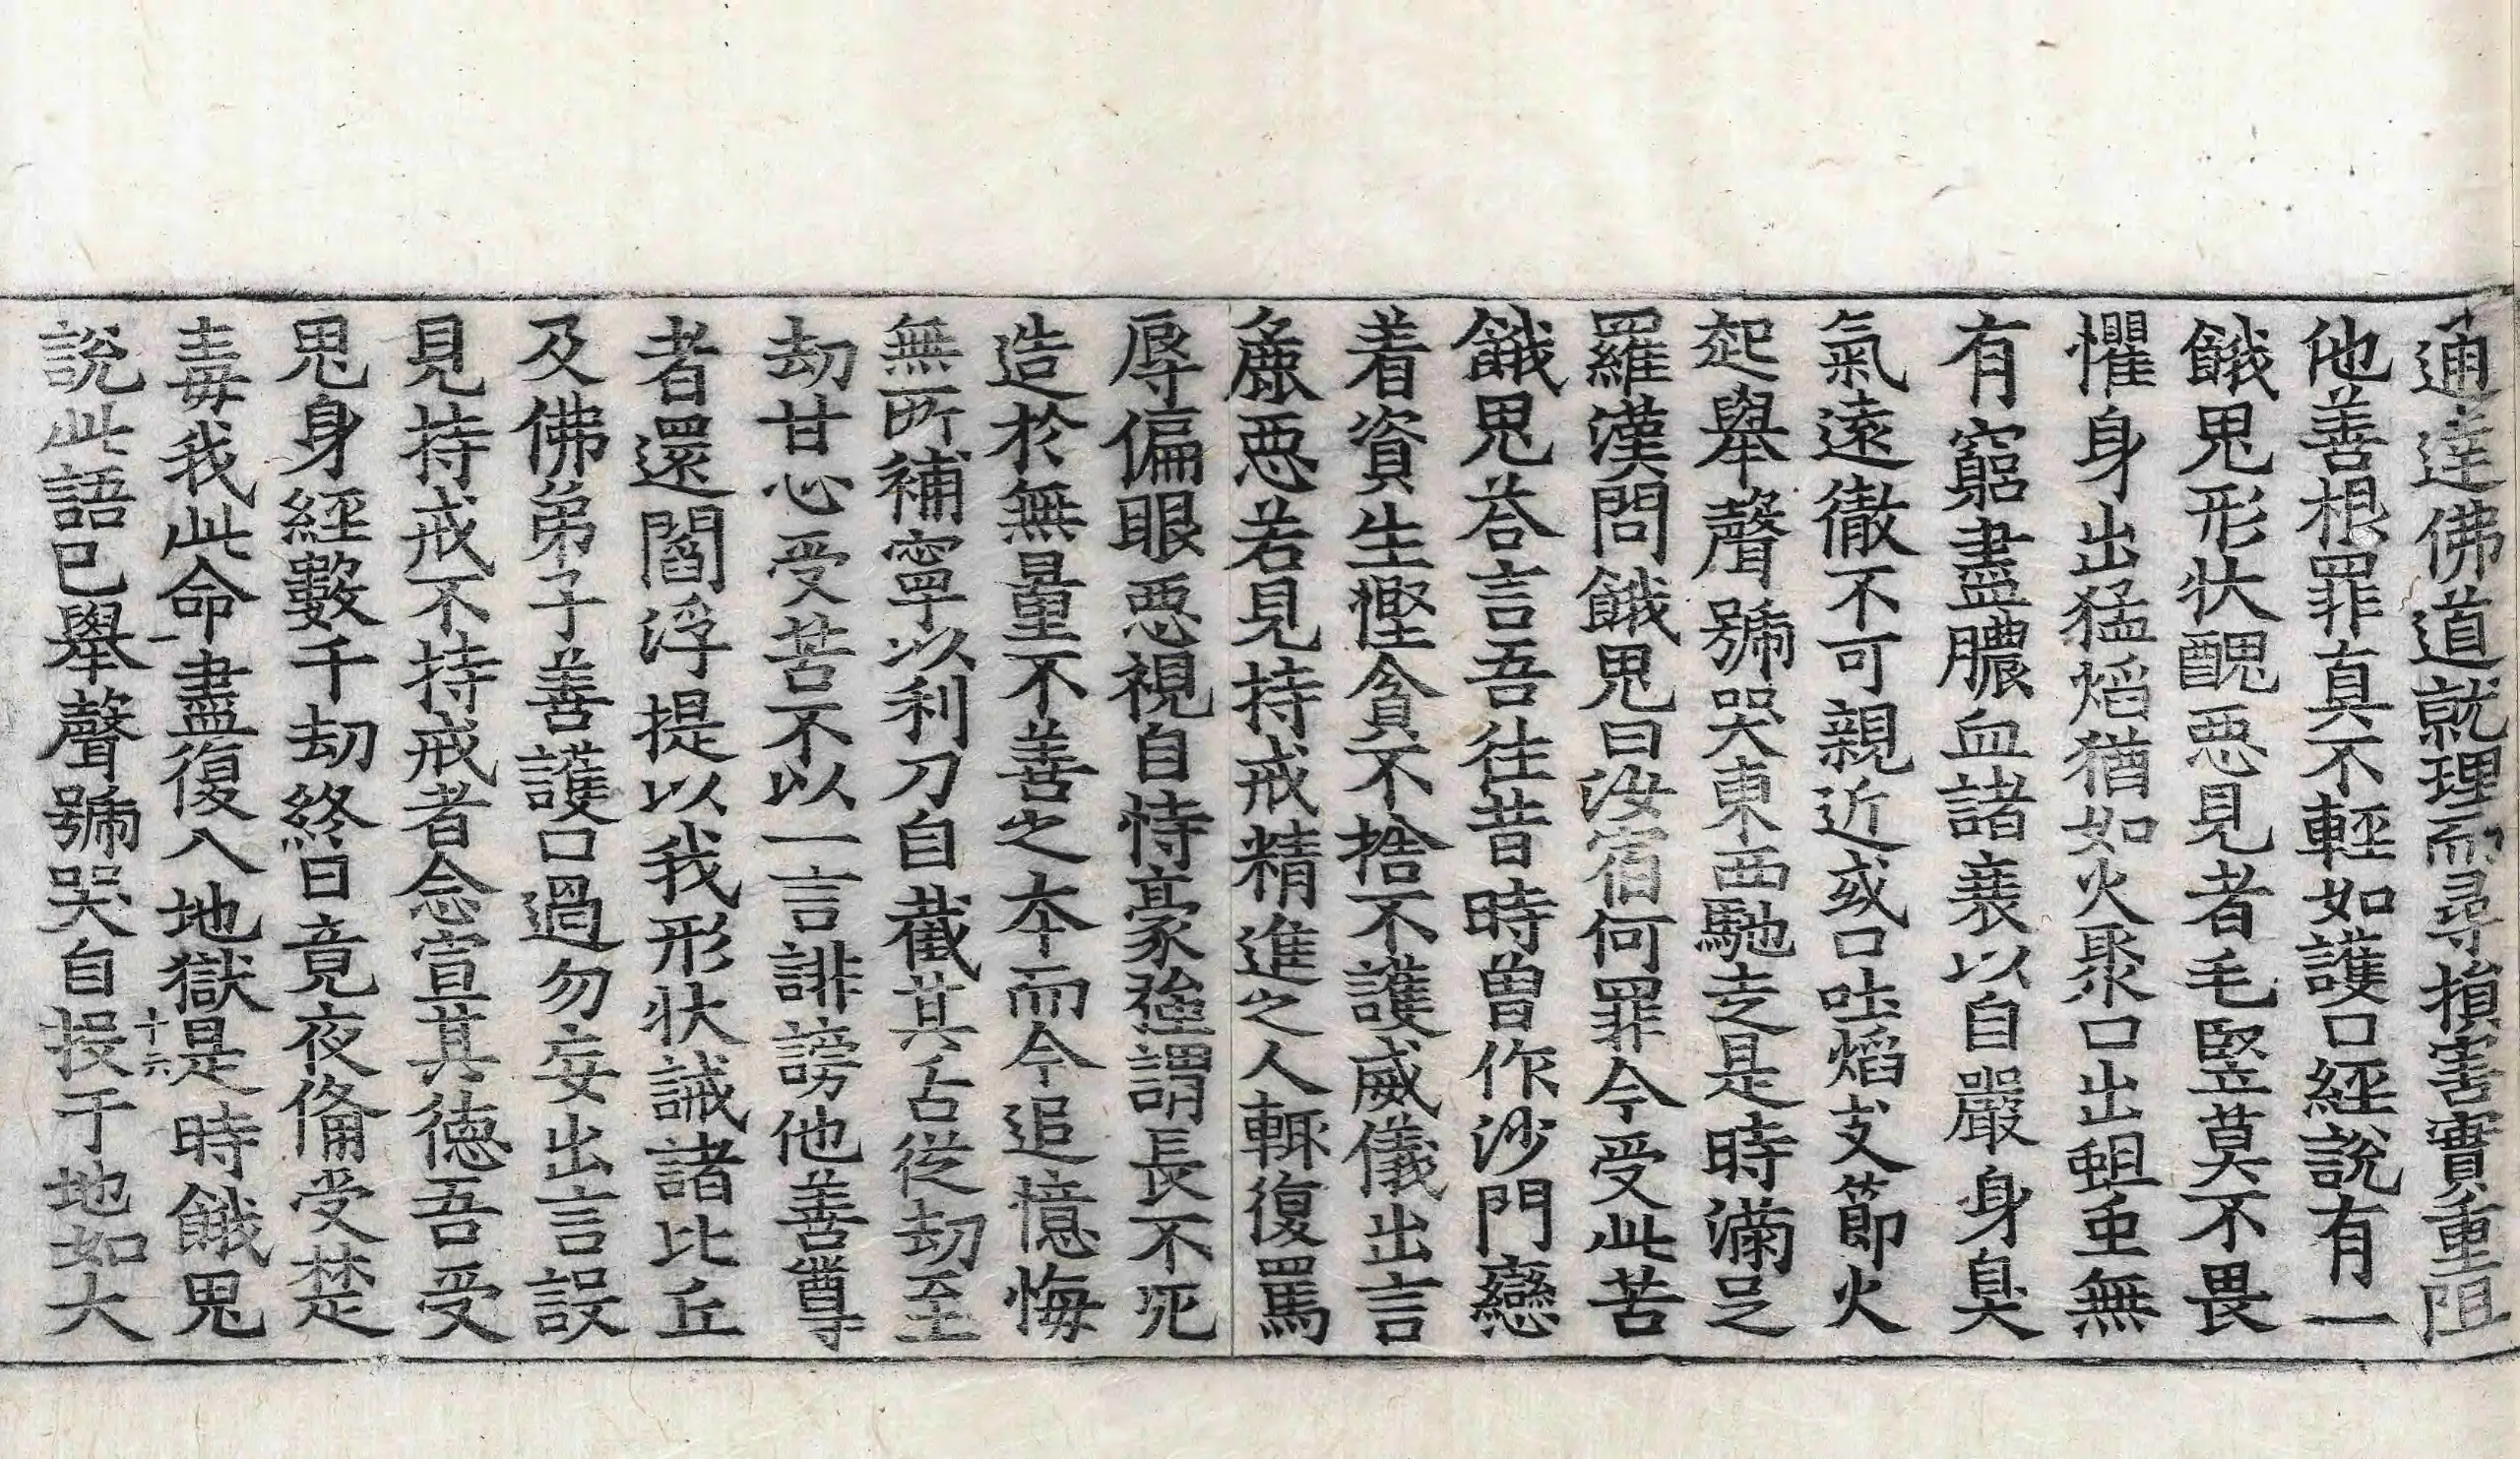 通達佛道就理而尋損害實重阻
他善根罪真不輕如護口經說有一
餓鬼形狀醜惡見者毛竪莫不畏
懼身出猛焰猶如火聚口出蛆虫無
有窮盡膿血諸衰以自嚴身臭
氣遠徹不可親近或口吐焰支節火
起舉聲號哭東西馳走是時滿足
羅漢問餓鬼曰汝宿何罪今受此苦
餓鬼荅言吾往昔時曾作沙門戀
着資生慳貪不捨不護威儀出言
麁惡若見持戒精進之人輙復罵
辱偏眼惡視自恃豪強謂長不死
造於無量不善之本而今追憶悔
無所補寧以利刀自截其舌從劫至
劫甘心受苦不以一言誹謗他善尊
者還閻浮提以我形狀誡諸比丘
及佛弟子善護口過勿妄出言設
見持戒不持戒者念宣其德吾受
鬼身經數千劫終日竟夜俻受楚
毒我此命盡復入地獄是時餓鬼
十六
說此語已舉聲號哭自投于地如大